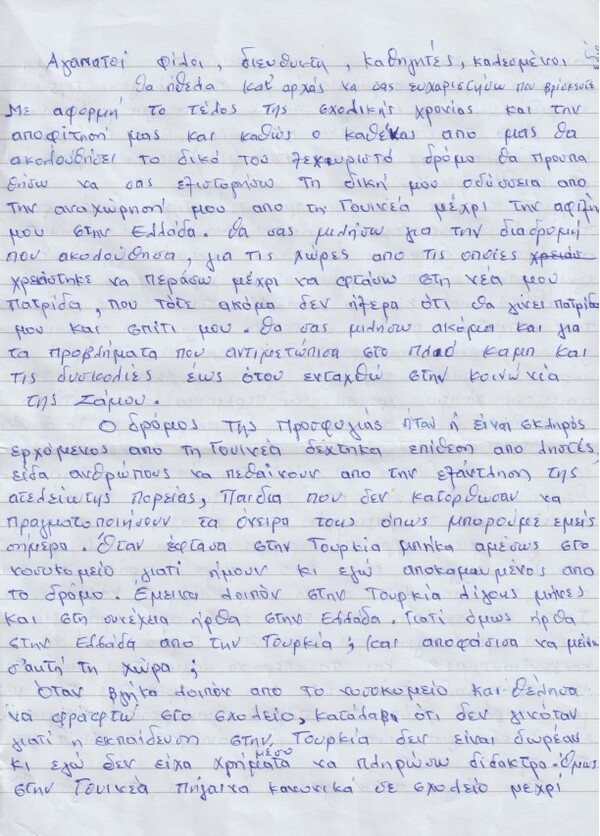 Αγαπητοί φίλοι, διευθυντή, καθηγητές, καλεσμένοι
θα ήθελα κατ' αρχάς να σας ευχαριστήσω που βρίσκεστε
Με αφορμή το τέλος της σχολικής χρονιάς και την
αποφίτησή μας και καθώς ο καθένας απο μας θα
ακολουθήσει το δικό του ξεχωριστό δρόμο θα προσπα
θήσω να σας εξιστορήσω τη δική μου οδύσσεια απο
την αναχώρησή μου απο τη Γουινέα μέχρι την αφιξη
μου στην Ελλάδα. Θα σας μιλήσω για την διαδρομή
που ακολούθησα, για τις χώρες απο τις οποίες χρειάσ
χρειάστηκε να περάσω μέχρι να φτάσω στη νέα μου
πατρίδα, που τότε ακόμα δεν ήξερα ότι θα γίνει πατρίδα
μου και σπίτι μου. Θα σας μιλήσω ακόμα και για
τα προβλήματα που αντιμετώπισα στο καμπ και
τις δυσκολίες έως ότου ενταχθώ στην κοινωνία
της Σάμου.
Ο δρόμος της προσφυγιάς ήταν ή είναι σκληρός
ερχόμενος απο τη Γουινέα δέχτηκα επίθεση απο ληστές,
είδα ανθρώπους να πεθαίνουν απο την εξάντληση της
ατελείωτης πορείας, Παιδια που δεν κατόρθωσαν να
πραγματοποιήσουν τα όνειρα τους όπως μπορούμε εμείς
σήμερα. Όταν έφτασα στην Τουρκία μπήκα αμέσως στο
νοσοκομείο γιατί ήμουν κι εγώ αποκαμωμένος απο
το δρόμο. Έμεινα λοιπόν στην Τουρκία λίγους μήνες
και στη συνέχεια ήρθα στην Ελλάδα. Γιατί όμως ήρθα
στην Ελλάδα απο την Τουρκία; και αποφάσισα να μείνω
σ'αυτή τη χώρα;
Όταν βγήκα λοιπόν απο το νοσοκομείο και θέλησα
να γραφτώ στο σχολείο, κατάλαβα ότι δεν γινόταν
γιατί η εκπαίδευση στην Τουρκία δεν είναι δωρεάν
κι εγώ δεν είχα χρήματα να πληρώσω δίδακτρα. Όμως
στην Γουινέα πήγαινα κανονικά σε σχολείο μεχρί